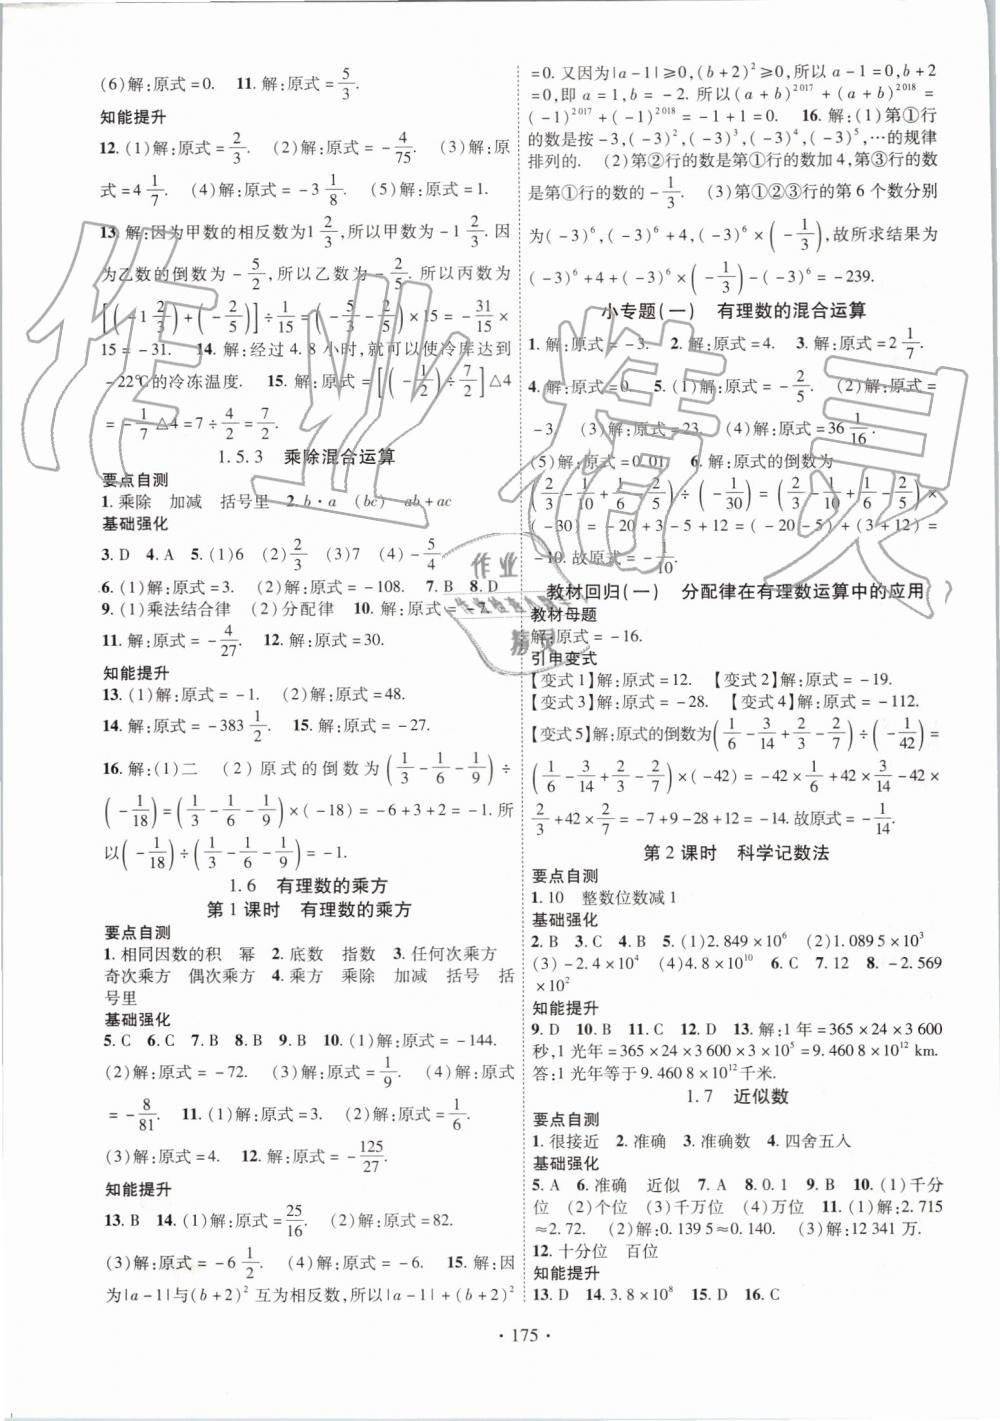 (6)解:原式=0. 11.解:原式=5/3.
知能提升
12.(1)解:原式=2/3. (2)解:原式=-4/75. (3)解:原
式=4 1/7. (4)解:原式=-3 1/8. (5)解:原式=1.
13.解:因为甲数的相反数为1 2/3,所以甲数为-1 2/3.因
为乙数的倒数为-5/2,所以乙数为-2/5.所以丙数为
[(-1 2/3)+(-2/5)]÷1/15=(-5/3-2/5)×15=-31/15×
15=-31. 14.解:经过4.8小时,就可以使冷库达到
-22℃的冷冻温度. 15.解:原式=[(-1/2)÷7/2]△4
=-1/7△4=7÷4/2=7/2.
1.5.3 乘除混合运算
要点自测
1.乘除 加减 括号里 2.b·a (bc) ab+ac
基础强化
3.D 4.A 5.(1)6 (2)2/3 (3)7 (4)-5/4
6.(1)解:原式=3. (2)解:原式=-108. 7.B 8.D
9.(1)乘法结合律 (2)分配律 10.解:原式=-7.
11.解:原式=-4/27. 12.解:原式=30.
知能提升
13.(1)解:原式=-1. (2)解:原式=48.
14.解:原式=-383 1/2. 15.解:原式=-27.
16.解:(1)二 (2)原式的倒数为(1/3-1/6-1/9)÷
(-1/18)=(1/3-1/6-1/9)×(-18)=-6+3+2=-1.所
以(-1/18)÷(1/3-1/6-1/9)=-1.
1.6 有理数的乘方
第1课时 有理数的乘方
要点自测
1.相同因数的积 幂 2.底数 指数 3.任何次乘方
奇次乘方 偶次乘方 4.乘方 乘除 加减 括号 括
号里
基础强化
5.C 6.C 7.B 8.B 9.B 10.(1)解:原式=-144.
(2)解:原式=-72. (3)解:原式=1/9. (4)解:原式
=-8/81. 11.(1)解:原式=3. (2)解:原式=1/6.
(3)解:原式=4. 12.解:原式=-125/27.
知能提升
13.B 14.(1)解:原式=25/16. (2)解:原式=82.
(3)解:原式=-6 1/2. (4)解:原式=-6. 15.解:因
为|a-1|与(b+2)²互为相反数,所以|a-1|+(b+2)²
=0.又因为|a-1|≥0,(b+2)²≥0,所以a-1=0,b+2
=0,即a=1,b=-2.所以(a+b)²⁰¹⁷+(a+b)²⁰¹⁸=
(-1)²⁰¹⁷+(-1)²⁰¹⁸=-1+1=0. 16.解:(1)第①行
的数是按-3,(-3)²,(-3)³,(-3)⁴,(-3)⁵,…的规律
排列的. (2)第②行的数是第①行的数加4,第③行的数
是第①行的数的-1/3. (3)第①②③行的第6个数分别
为(-3)⁶,(-3)⁶+4,(-3)⁶×(-1/3),故所求结果为
(-3)⁶+4+(-3)⁶×(-1/3)-(-3)⁶=-239.
小专题(一) 有理数的混合运算
1.解:原式=-3. 2.解:原式=4. 3.解:原式=2 1/7.
4.解:原式=0. 5.(1)解:原式=-2/5. (2)解:原式=
-3 (3)解:原式=23. (4)解:原式=36 1/16.
(5)解:原式=0.01. 6.解:原式的倒数为
(2/3-1/10+1/6-2/5)÷(-1/30)=(2/3-1/10+1/6-2/5)×
(-30)=-20+3-5+12=(-20-5)+(3+12)=
-10.故原式=-1/10.
教材回归(一) 分配律在有理数运算中的应用
教材母题
解:原式=-16.
引申变式
【变式1】解:原式=12. 【变式2】解:原式=-19.
【变式3】解:原式=-28. 【变式4】解:原式=-112.
【变式5】解:原式的倒数为(1/6-3/14+2/3-2/7)÷(-1/42)=
(1/6-3/14+2/3-2/7)×(-42)=-42×1/6+42×3/14-42×
2/3+42×2/7=-7+9-28+12=-14.故原式=-1/14.
第2课时 科学记数法
要点自测
1.10 整数位数减1
基础强化
2.B 3.C 4.B 5.(1)2.849×10⁶ (2)1.089 5×10⁵
(3)-2.4×10⁴ (4)4.8×10¹⁰ 6.C 7.12 8.-2.569
×10²
知能提升
9.D 10.B 11.C 12.D 13.解:1年=365×24×3 600
秒,1光年=365×24×3 600×3×10⁵=9.460 8×10¹² km.
答:1光年等于9.460 8×10¹²千米.
1.7 近似数
要点自测
1.很接近 2.准确 3.准确数 4.四舍五入
基础强化
5.A 6.准确 近似 7.A 8.0.1 9.B 10.(1)千分
位 (2)个位 (3)千万位 (4)万位 11.(1)解:2.715
≈2.72. (2)解:0.139 5≈0.140. (3)解:12 341万.
12.十分位 百位
知能提升
13.D 14.3.8×10⁸ 15.D 16.C
·175·
作业精灵
作业
精灵